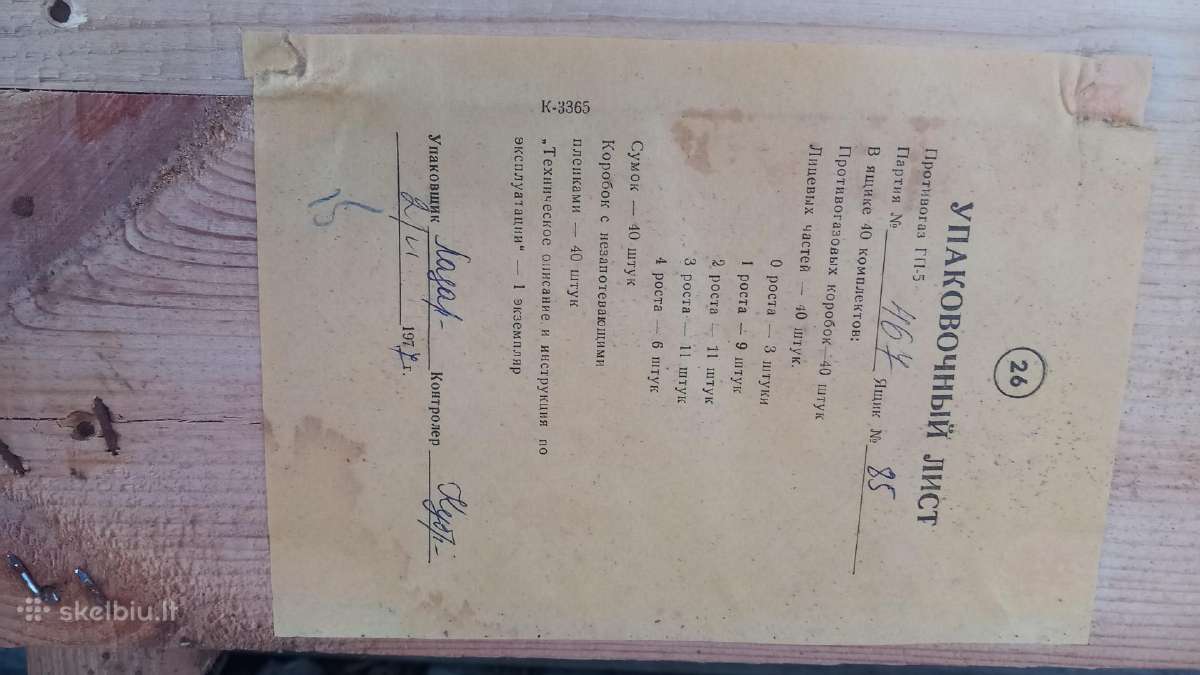 26
УПАКОВОЧНЫЙ ЛИСТ
Противогаз ГП-5
Партия № 467 Ящик № 85
В ящике 40 комплектов:
Противогазовых коробок—40 штук
Лицевых частей — 40 штук.
0 роста — 3 штуки
1 роста — 9 штук
2 роста — 11 штук
3 роста — 11 штук
4 роста — 6 штук
Сумок — 40 штук
Коробок с незапотевающими
пленками — 40 штук
„Техническое описание и инструкция по
эксплуатации“ — 1 экземпляр
К-3365
Упаковщик Лазар- Контролер
2/VI 1977 г.
skelbiu.lt